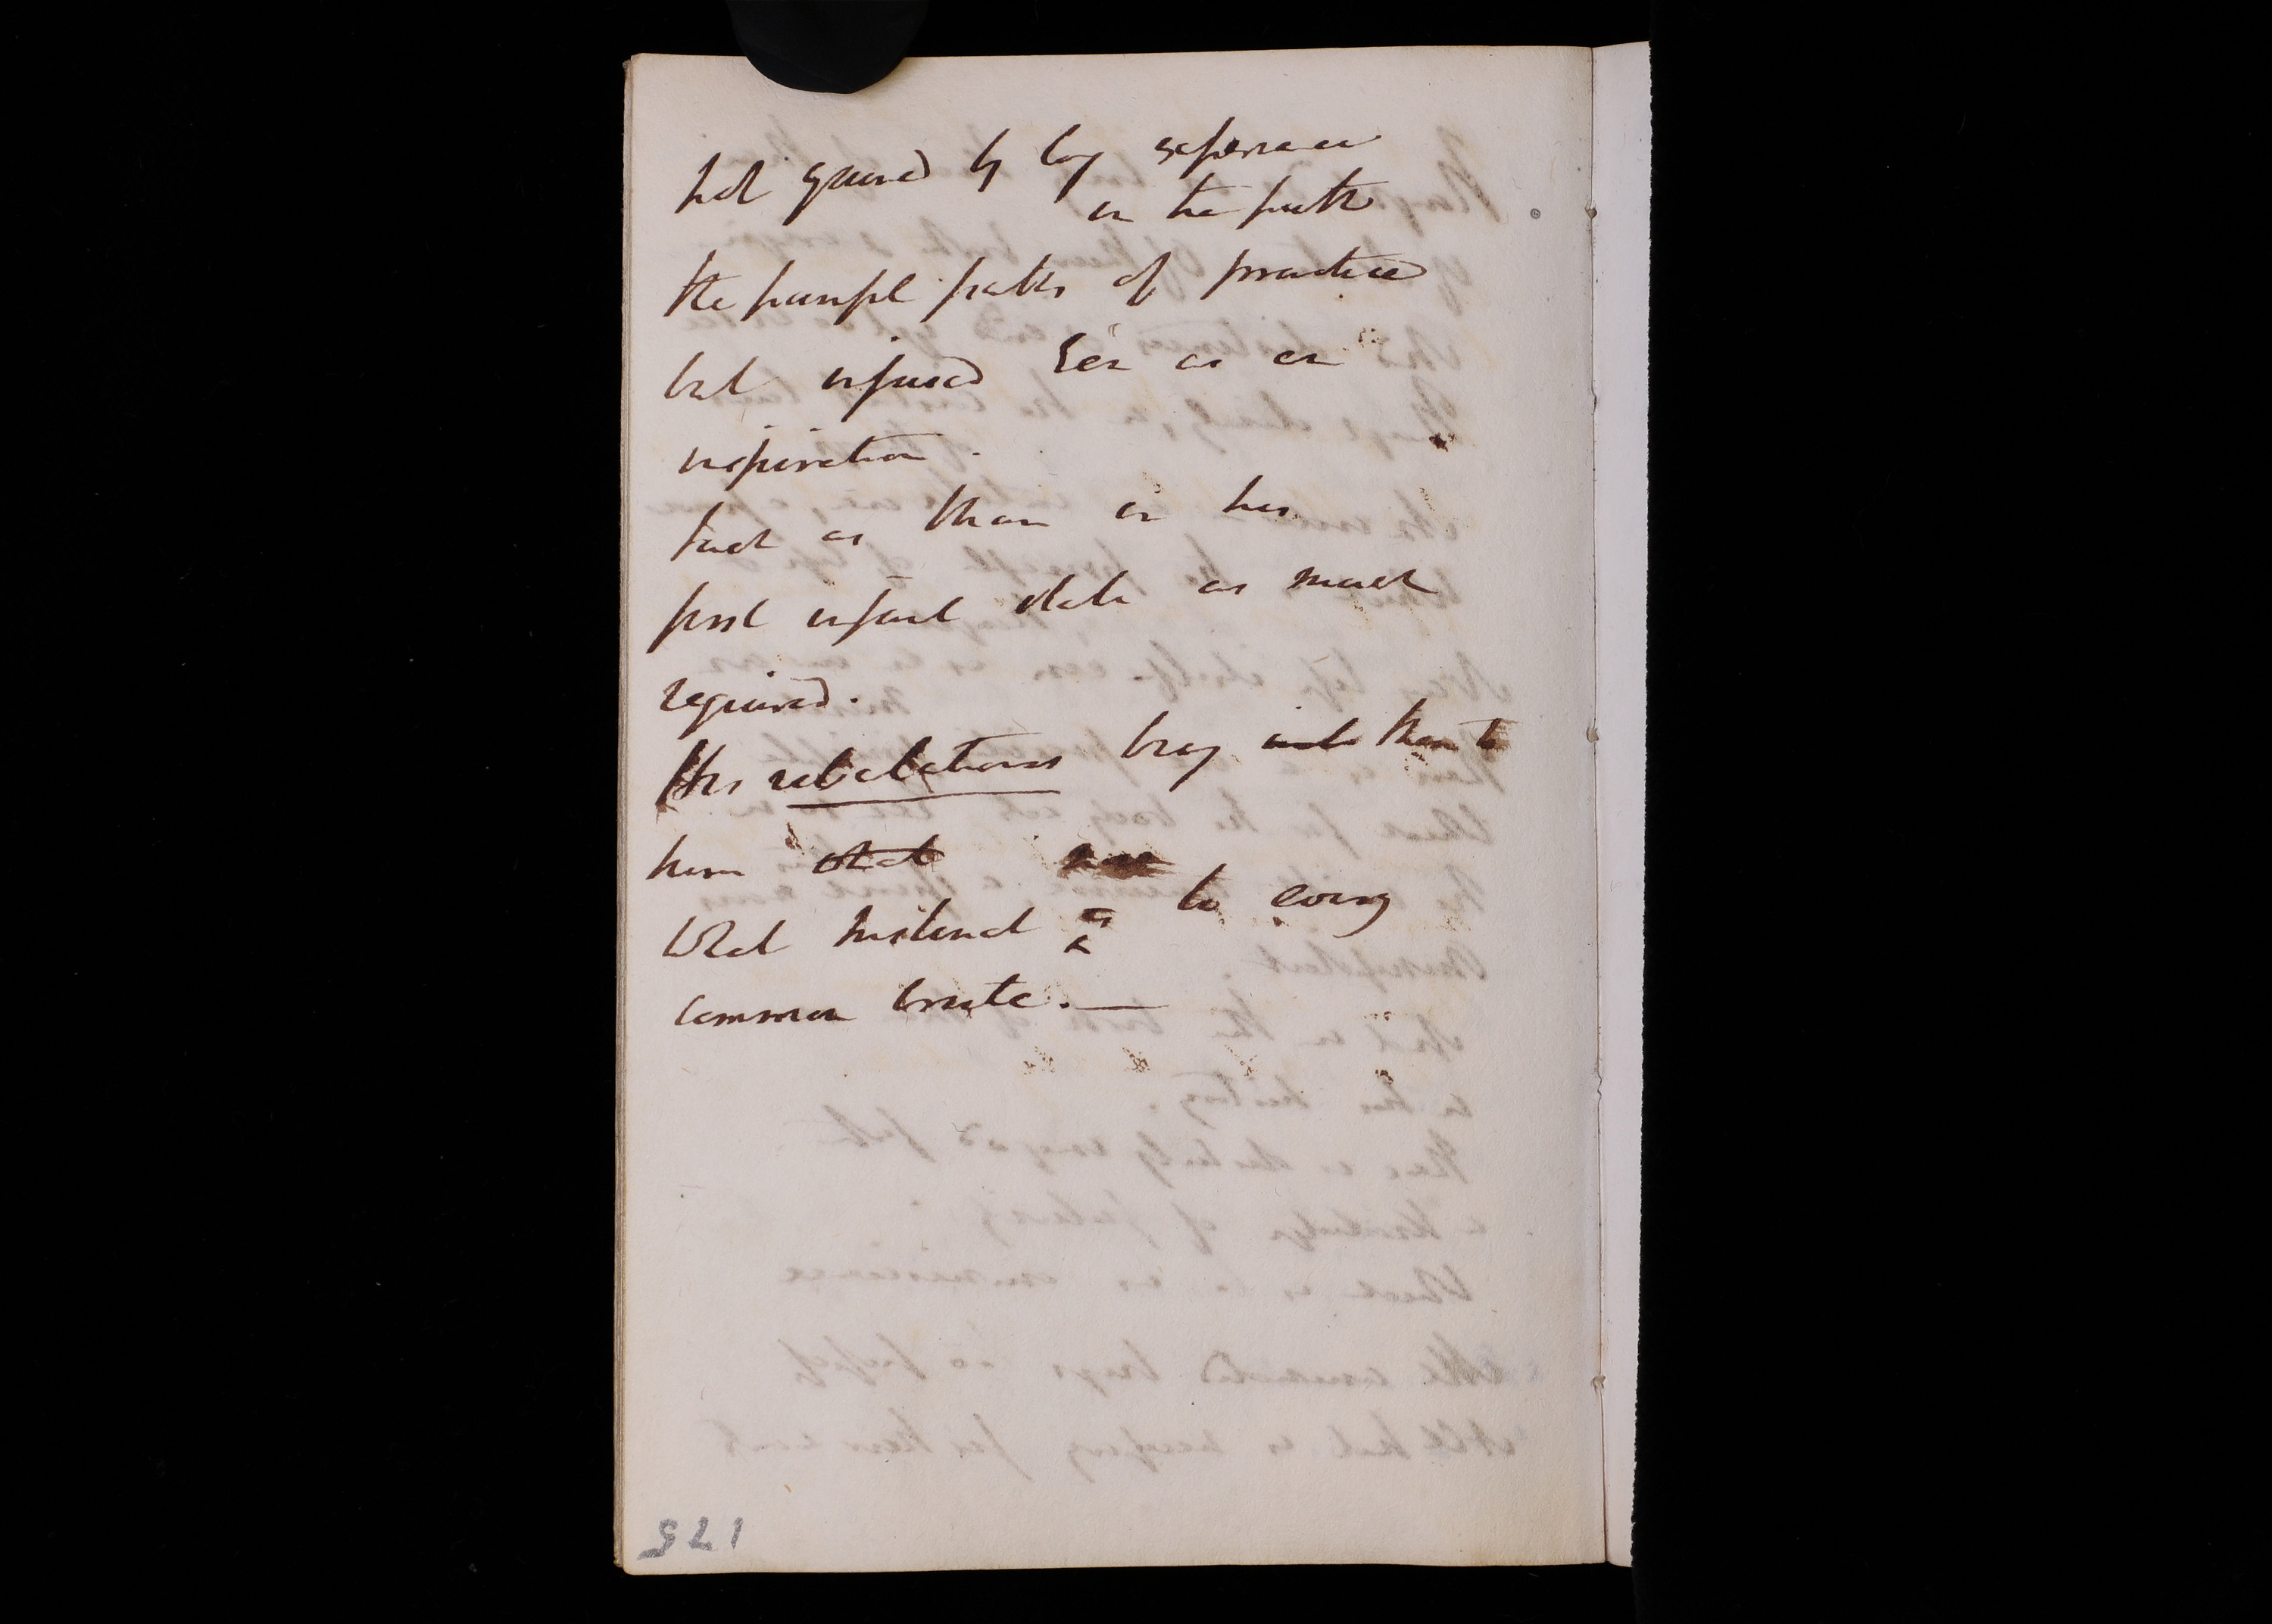 not gained by long experience
in the path
the painful paths of practice
but infused e'en as an
inspiration.
taught as them in his
first infant state as much
required.
His revelations being into them to
him what
What instinct is to every
common brute. —
175